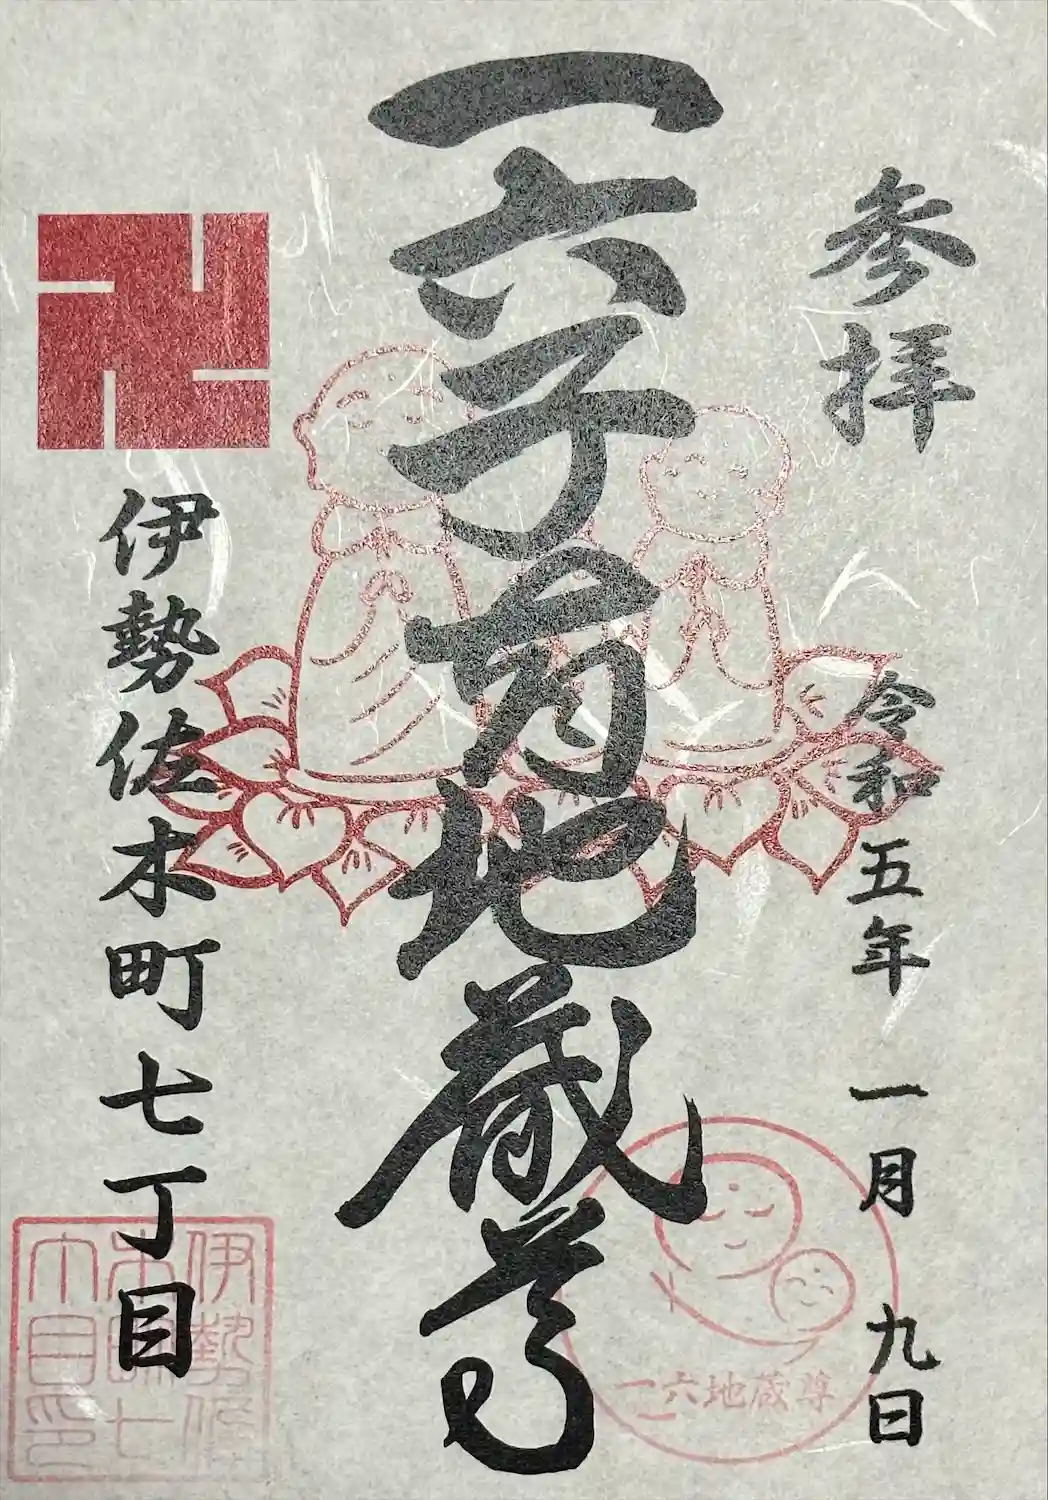 参拝
令和五年一月九日
一六子育地蔵尊
伊勢佐木町七丁目
一六地蔵尊
伊勢佐
木町七
丁目印